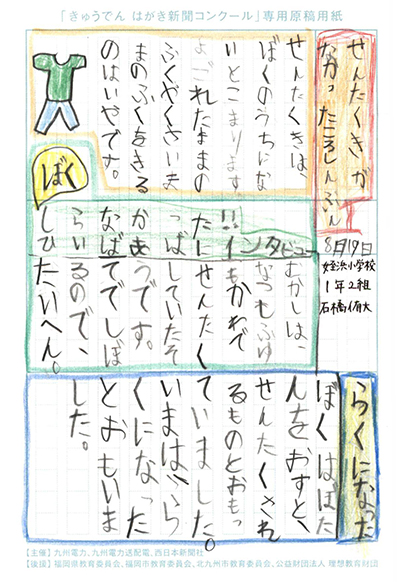 「きゅうでん はがき新聞コンクール」専用原稿用紙
せんたくきが
なかったころしんぶん
8月19日
姪浜小学校
1年2組
石橋侑大
せんたくきは、
ぼくのうちにな
いとこまります。
よごれたままの
ふくやくさいま
まのふくをきる
のはいやです。
ぼく
しらなかった
ひいばあばに
インタビュー!!
むかしは、
なつもふゆ
もかわで
せんたく
していたそ
うです。
てでしぼ
るので、
たいへん。
らくになった
ぼくはぼた
んをおすと、
せんたくされ
るものとおもっ
ていました。
いまは、ら
くになった
とおもいま
した。
【主催】九州電力、九州電力送配電、西日本新聞社
【後援】福岡県教育委員会、福岡市教育委員会、北九州市教育委員会、公益財団法人 理想教育財団